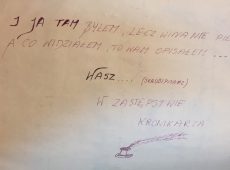 I JA TAM BYŁEM, LECZ WINA NIE PIŁ
A CO WIDZIAŁEM, TO WAM OPISAŁEM ...
WASZ....
W ZASTĘPSTWIE
KRONIKARZA